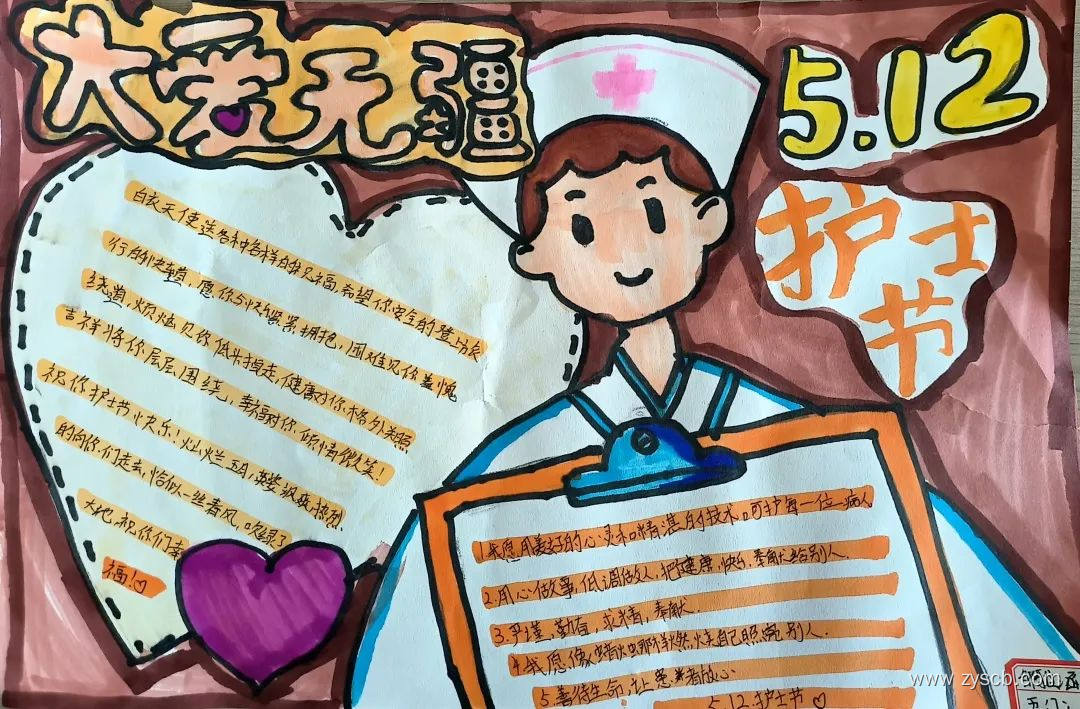 大爱无疆
5.12
护士节
白衣天使送各种各样的祝福,希望你安全的登上
行的隧道,愿你与快乐紧紧拥抱,困难见你羞愧
绕道,烦恼见你低头拐走,健康对你格外关照
吉祥将你层层围绕,幸福对你倾情微笑!
祝你护士节快乐!灿烂
的向你们走去,恰似一丝春风,唤绿了
大地,祝你们幸
福!♡
1.我愿用美好的心灵和精湛的技术,呵护每一位病人
2.用心做事,低调做人,把健康,快乐,奉献给别人.
3.严谨、勤奋,求精,奉献.
4.我愿像蜡烛那样燃烧自己照亮别人.
5.善待生命,让患者放心
5.12.护士节♡
www.zyscbl.com